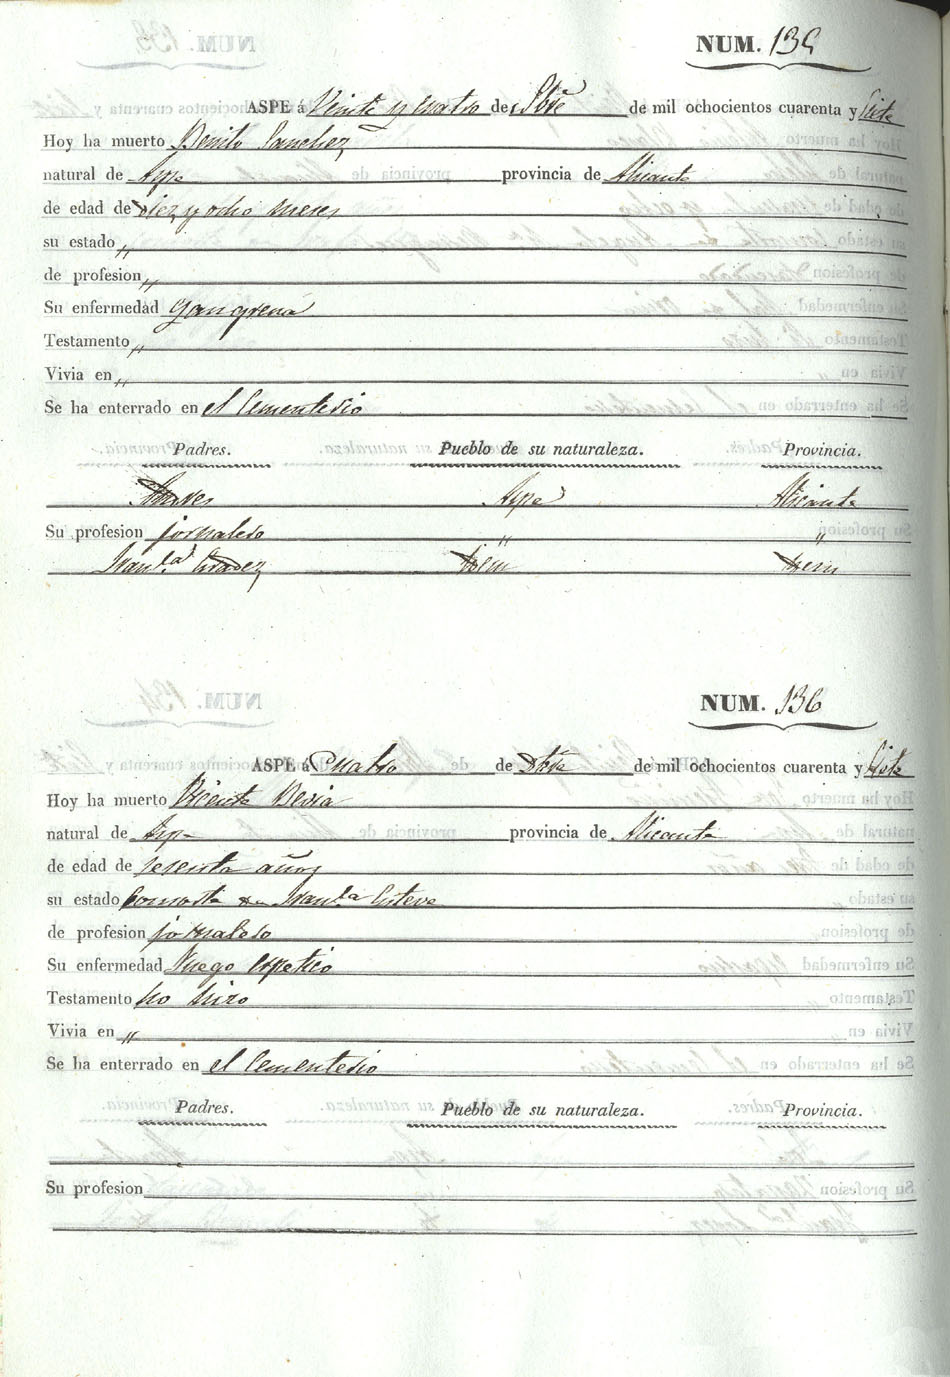 NUM. 135
ASPE á Veinte y cuatro de Sbre de mil ochocientos cuarenta y siete
Hoy ha muerto Benito Sanchez
natural de Aspe provincia de Alicante
de edad de diez y ocho meses
su estado „
de profesion „
Su enfermedad gangrena
Testamento „
Vivia en „
Se ha enterrado en el Cementerio
Padres. Pueblo de su naturaleza. Provincia.
Aspe Alicante
Su profesion jornalero „ „
Idem Idem
NUM. 136
ASPE á Cuatro de de mil ochocientos cuarenta y siete
Hoy ha muerto Vicente Bevia
natural de Aspe provincia de Alicante
de edad de sesenta años
su estado Consorte de Man.la Esteve
de profesion jornalero
Su enfermedad
Testamento no hizo
Vivia en „
Se ha enterrado en el Cementerio
Padres. Pueblo de su naturaleza. Provincia.
Su profesion